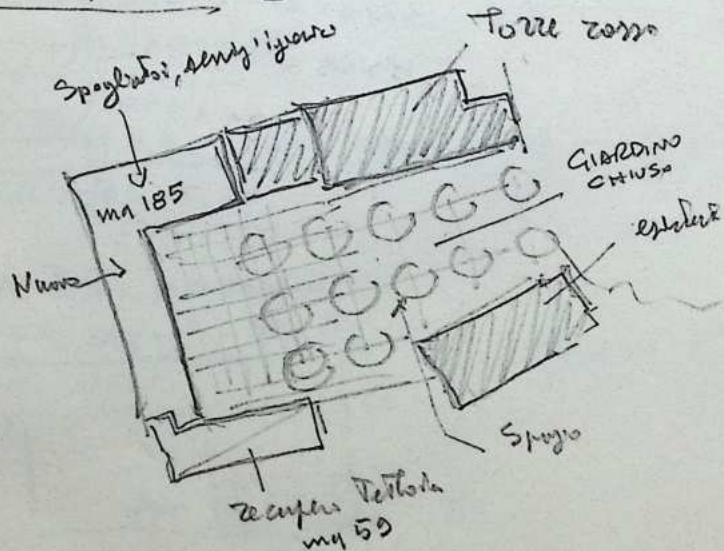 Spogliatoi, servizi igienici
Torre rossa
mq 185
GIARDINO
CHIUSO
esistente
Nuovo
Spazio
recupero Tettoia
mq 59